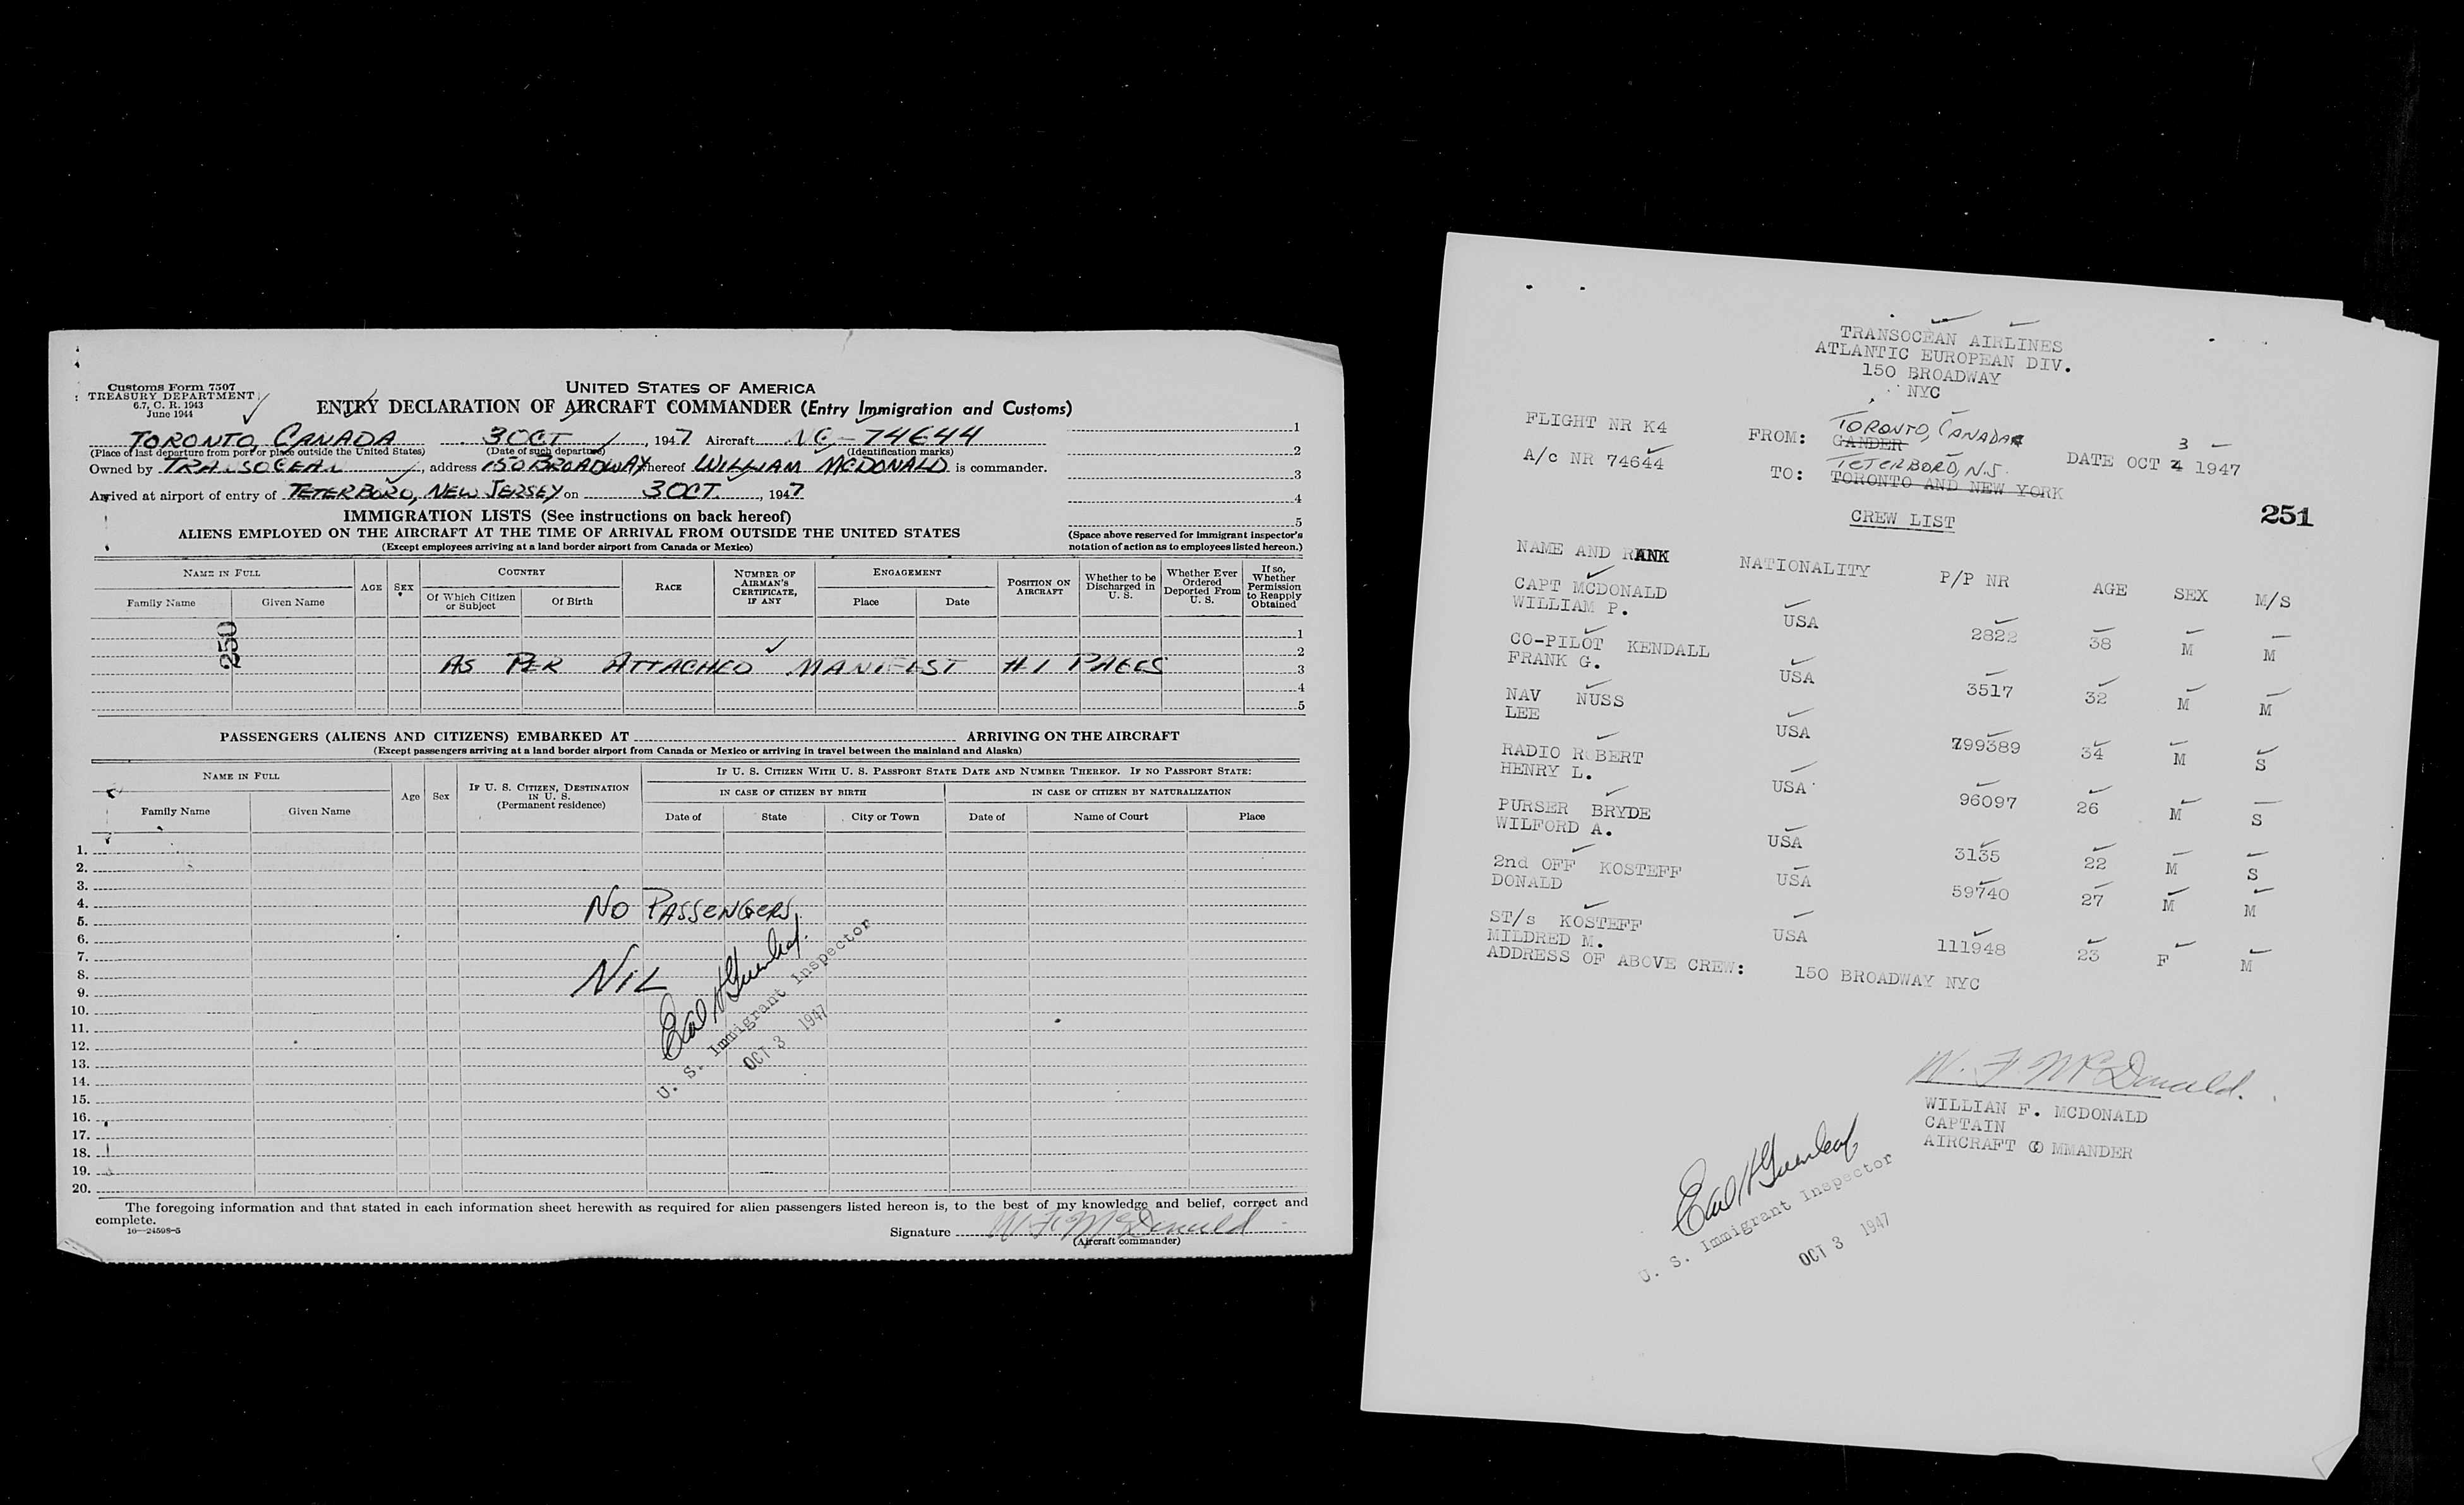 Customs Form 7507
TREASURY DEPARTMENT
6.7, C. R. 1943
June 1944
UNITED STATES OF AMERICA
ENTRY DECLARATION OF AIRCRAFT COMMANDER (Entry Immigration and Customs)
TORONTO, CANADA 3 OCT , 1947 Aircraft NC-74644
(Place of last departure from port or place outside the United States) (Date of such departure) (Identification marks)
Owned by TRANSOCEAN , address 150 BROADWAY hereof WILLIAM MCDONALD is commander.
Arrived at airport of entry of TETERBORO, NEW JERSEY on 3 OCT. , 1947
1
2
3
4
5
IMMIGRATION LISTS (See instructions on back hereof)
ALIENS EMPLOYED ON THE AIRCRAFT AT THE TIME OF ARRIVAL FROM OUTSIDE THE UNITED STATES
(Except employees arriving at a land border airport from Canada or Mexico)
(Space above reserved for Immigrant Inspector's
notation of action as to employees listed hereon.)
NAME IN FULL AGE SEX COUNTRY RACE NUMBER OF AIRMAN'S CERTIFICATE, IF ANY ENGAGEMENT POSITION ON AIRCRAFT Whether to be Discharged in U. S. Whether Ever Ordered Deported From U. S. If so, Whether Permission to Reapply Obtained
Family Name Given Name Of Which Citizen or Subject Of Birth Place Date
250
1
2
AS PER ATTACHED MANIFEST #1 PAGES 3
4
5
PASSENGERS (ALIENS AND CITIZENS) EMBARKED AT ARRIVING ON THE AIRCRAFT
(Except passengers arriving at a land border airport from Canada or Mexico or arriving in travel between the mainland and Alaska)
NAME IN FULL Age Sex IF U. S. CITIZEN, DESTINATION IN U. S. (Permanent residence) IF U. S. CITIZEN WITH U. S. PASSPORT STATE DATE AND NUMBER THEREOF. IF NO PASSPORT STATE:
IN CASE OF CITIZEN BY BIRTH IN CASE OF CITIZEN BY NATURALIZATION
Family Name Given Name Date of State City or Town Date of Name of Court Place
1.
2.
3.
4. NO PASSENGERS
5.
6.
7.
8. NIL
9.
10.
11.
12.
13.
14.
15.
16.
17.
18.
19.
20.
Earl H Greenleaf
U. S. Immigrant Inspector
OCT 3 1947
The foregoing information and that stated in each information sheet herewith as required for alien passengers listed hereon is, to the best of my knowledge and belief, correct and
complete.
16—24598-5
Signature W. F. McDonald
(Aircraft commander)
TRANSOCEAN AIRLINES
ATLANTIC EUROPEAN DIV.
150 BROADWAY
NYC
FLIGHT NR K4 FROM: TORONTO, CANADA
GANDER
A/c NR 74644 TO: TETERBORO, N.J.
TORONTO AND NEW YORK
DATE OCT 3 1947
251
CREW LIST
NAME AND RANK NATIONALITY P/P NR AGE SEX M/S
CAPT MCDONALD
WILLIAM P. USA 2822 38 M M
CO-PILOT KENDALL
FRANK G. USA 3517 32 M M
NAV NUSS
LEE USA 799389 34 M S
RADIO ROBERT
HENRY L. USA 96097 26 M S
PURSER BRYDE
WILFORD A. USA 3135 22 M S
2nd OFF KOSTEFF
DONALD USA 59740 27 M M
ST/s KOSTEFF
MILDRED M. USA 111948 23 F M
ADDRESS OF ABOVE CREW: 150 BROADWAY NYC
W. F. McDonald.
WILLIAN F. MCDONALD
CAPTAIN
AIRCRAFT COMMANDER
Earl H Greenleaf
U. S. Immigrant Inspector
OCT 3 1947